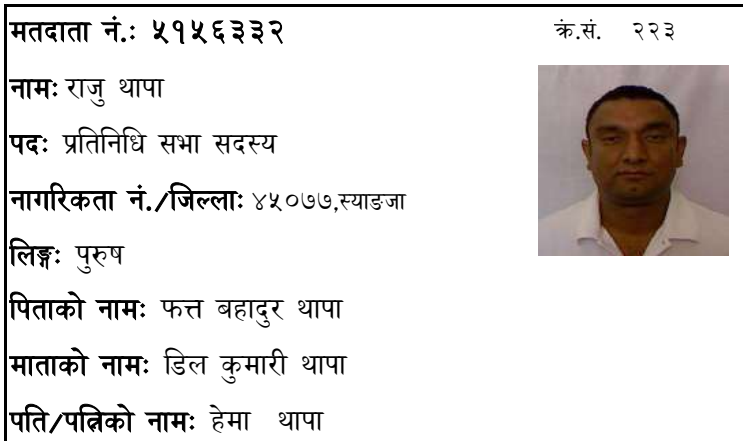 मतदाता नं.: ५१५६३३२ क्रं.सं. २२३
नामः राजु थापा
पदः प्रतिनिधि सभा सदस्य
नागरिकता नं./जिल्लाः ४५०७७,स्याङजा
लिङ्गः पुरुष
पिताको नामः फत्त बहादुर थापा
माताको नामः डिल कुमारी थापा
पति/पत्निको नामः हेमा थापा